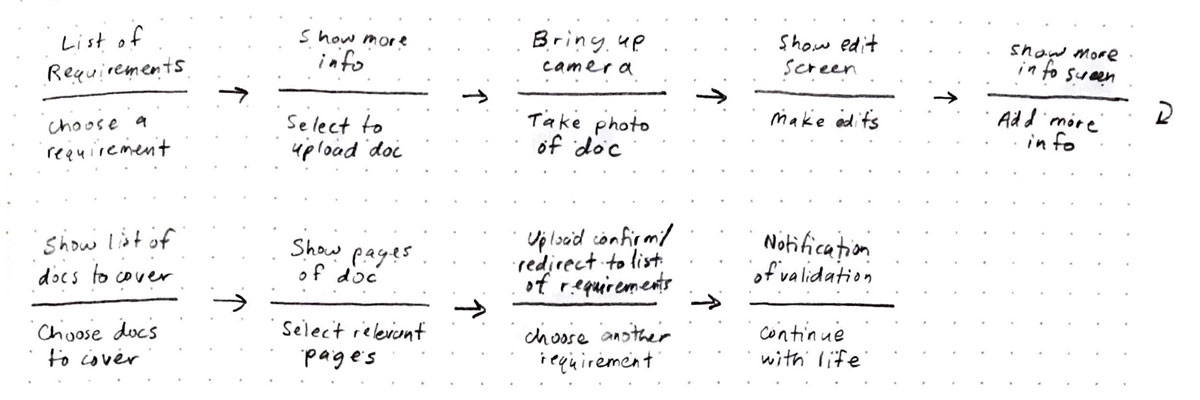 List of
Requirements
choose a
requirement
Show more
info
Select to
upload doc
Bring up
camera
Take photo
of doc
Show edit
screen
make edits
show more
info screen
Add more
info
Show list of
docs to cover
Choose docs
to cover
Show pages
of doc
Select relevant
pages
Upload confirm/
redirect to list
of requirements
choose another
requirement
Notification
of validation
continue
with life